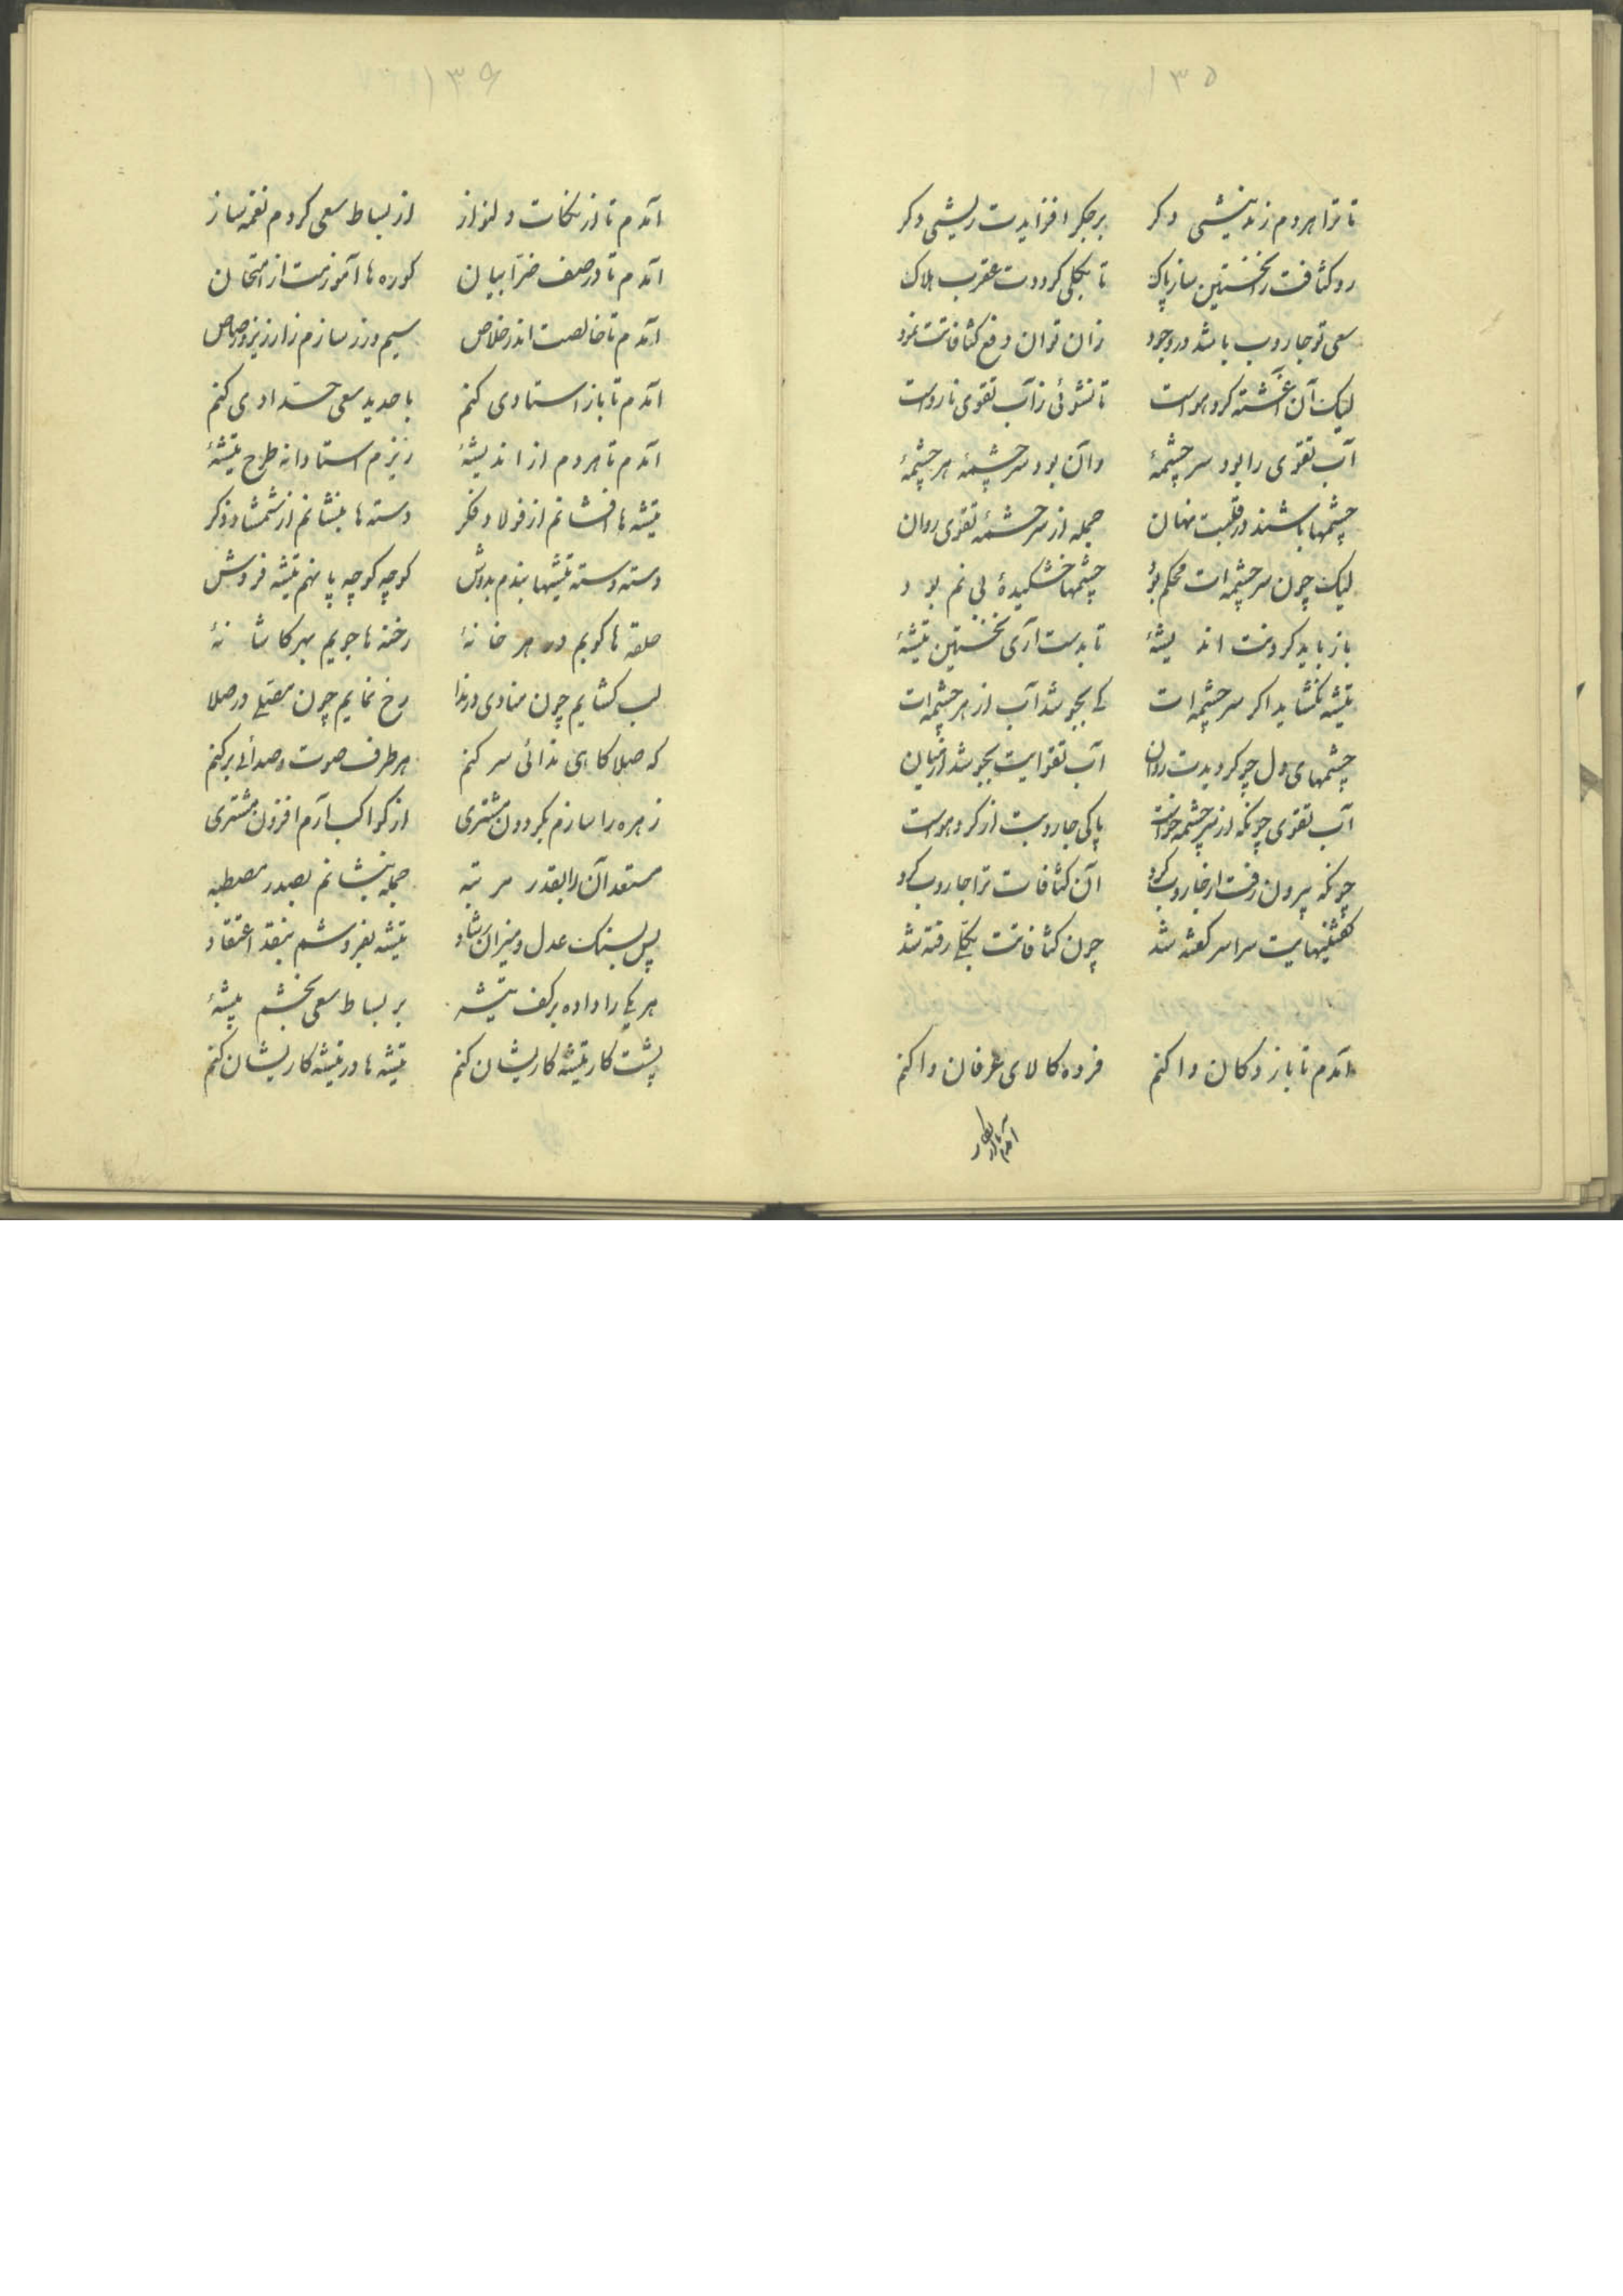 ۱۳۵
تا ترا هر دم زند نیشی دکر برجکر افزایدت ریشی دکر
رو کثافت را نخستین ساز پاک تا بکلی کرددت عقرب هلاک
سعی تو جاروب باشد در وجود زان توان دفع کثافاتت نمود
لیک آن آغشته کرد هواست تا نشوئی زآب تقوی نارواست
آب تقوی را بود سرچشمهٔ وآن بود سرچشمهٔ هر چشمهٔ
چشمها باشند در قلبت نهان جمله از سرچشمهٔ تقوی روان
لیک چون سرچشمه‌ات محکم بود چشمها خشکیدهٔ بی نم بود
باز باید کردنت اندیشهٔ تا بدست آری نخستین تیشهٔ
تیشه نکشاید اکر سرچشمه‌ات کی بجوشد آب از هر چشمه‌ات
چشمهای دل چو کردیدت روان آب تقوایت بجوشد از میان
آب تقوی چونکه از سرچشمه خواست پاکی جاروبت از کرد هواست
چونکه بیرون رفت از جاروب کرد آن کثافات ترا جاروب کرد
کفتنیهایت سراسر کفته شد چون کثافاتت بکلی رفته شد
آمدم تا باز دکان وا کنم فرده کالای عرفان وا کنم
آمدم تا از
۱۳۶
آمدم تا از نکات دلنواز از بساط سعی کردم نغمه ساز
آمدم تا در صف ضرابیان کوره‌ها آموزمت از امتحان
آمدم تا خالصت اندر خلاص سیم و زر سازم ز ارزیز و رصاص
آمدم تا باز استادی کنم با حدید سعی حدادی کنم
آمدم تا هر دم از اندیشهٔ ریزم استادانه طرح تیشهٔ
تیشه‌ها افشانم از فولاد فکر دسته‌ها بنشانم از شمشاد ذکر
دسته دسته تیشها بندم بدوش کوچه کوچه پا نهم تیشه فروش
حلقه‌ها کوبم در هر خانهٔ رخنه‌ها جویم بهر کاشانهٔ
لب کشایم چون منادی در ندا رخ نمایم چون مصلی در صلا
که صلا کاهی ندائی سر کنم هر طرف صوت و صدائی بر کنم
زهره را سازم بکردون مشتری از کواکب آرم افزون مشتری
مستعد آن را بقدر مرتبه جمله بنشانم بصدر مصطبه
پس بسنک عدل و میزان رشاد تیشه بفروشم بنقد اعتقاد
هر یکی را داده بر کف تیشهٔ بر بساط سعی بخشم پیشهٔ
پشت کار تیشه کاریشان کنم تیشه‌ها در تیشه کاریشان کنم